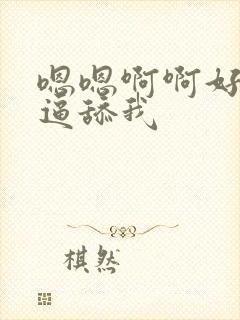 嗯嗯啊啊好
逼舔我
棋然